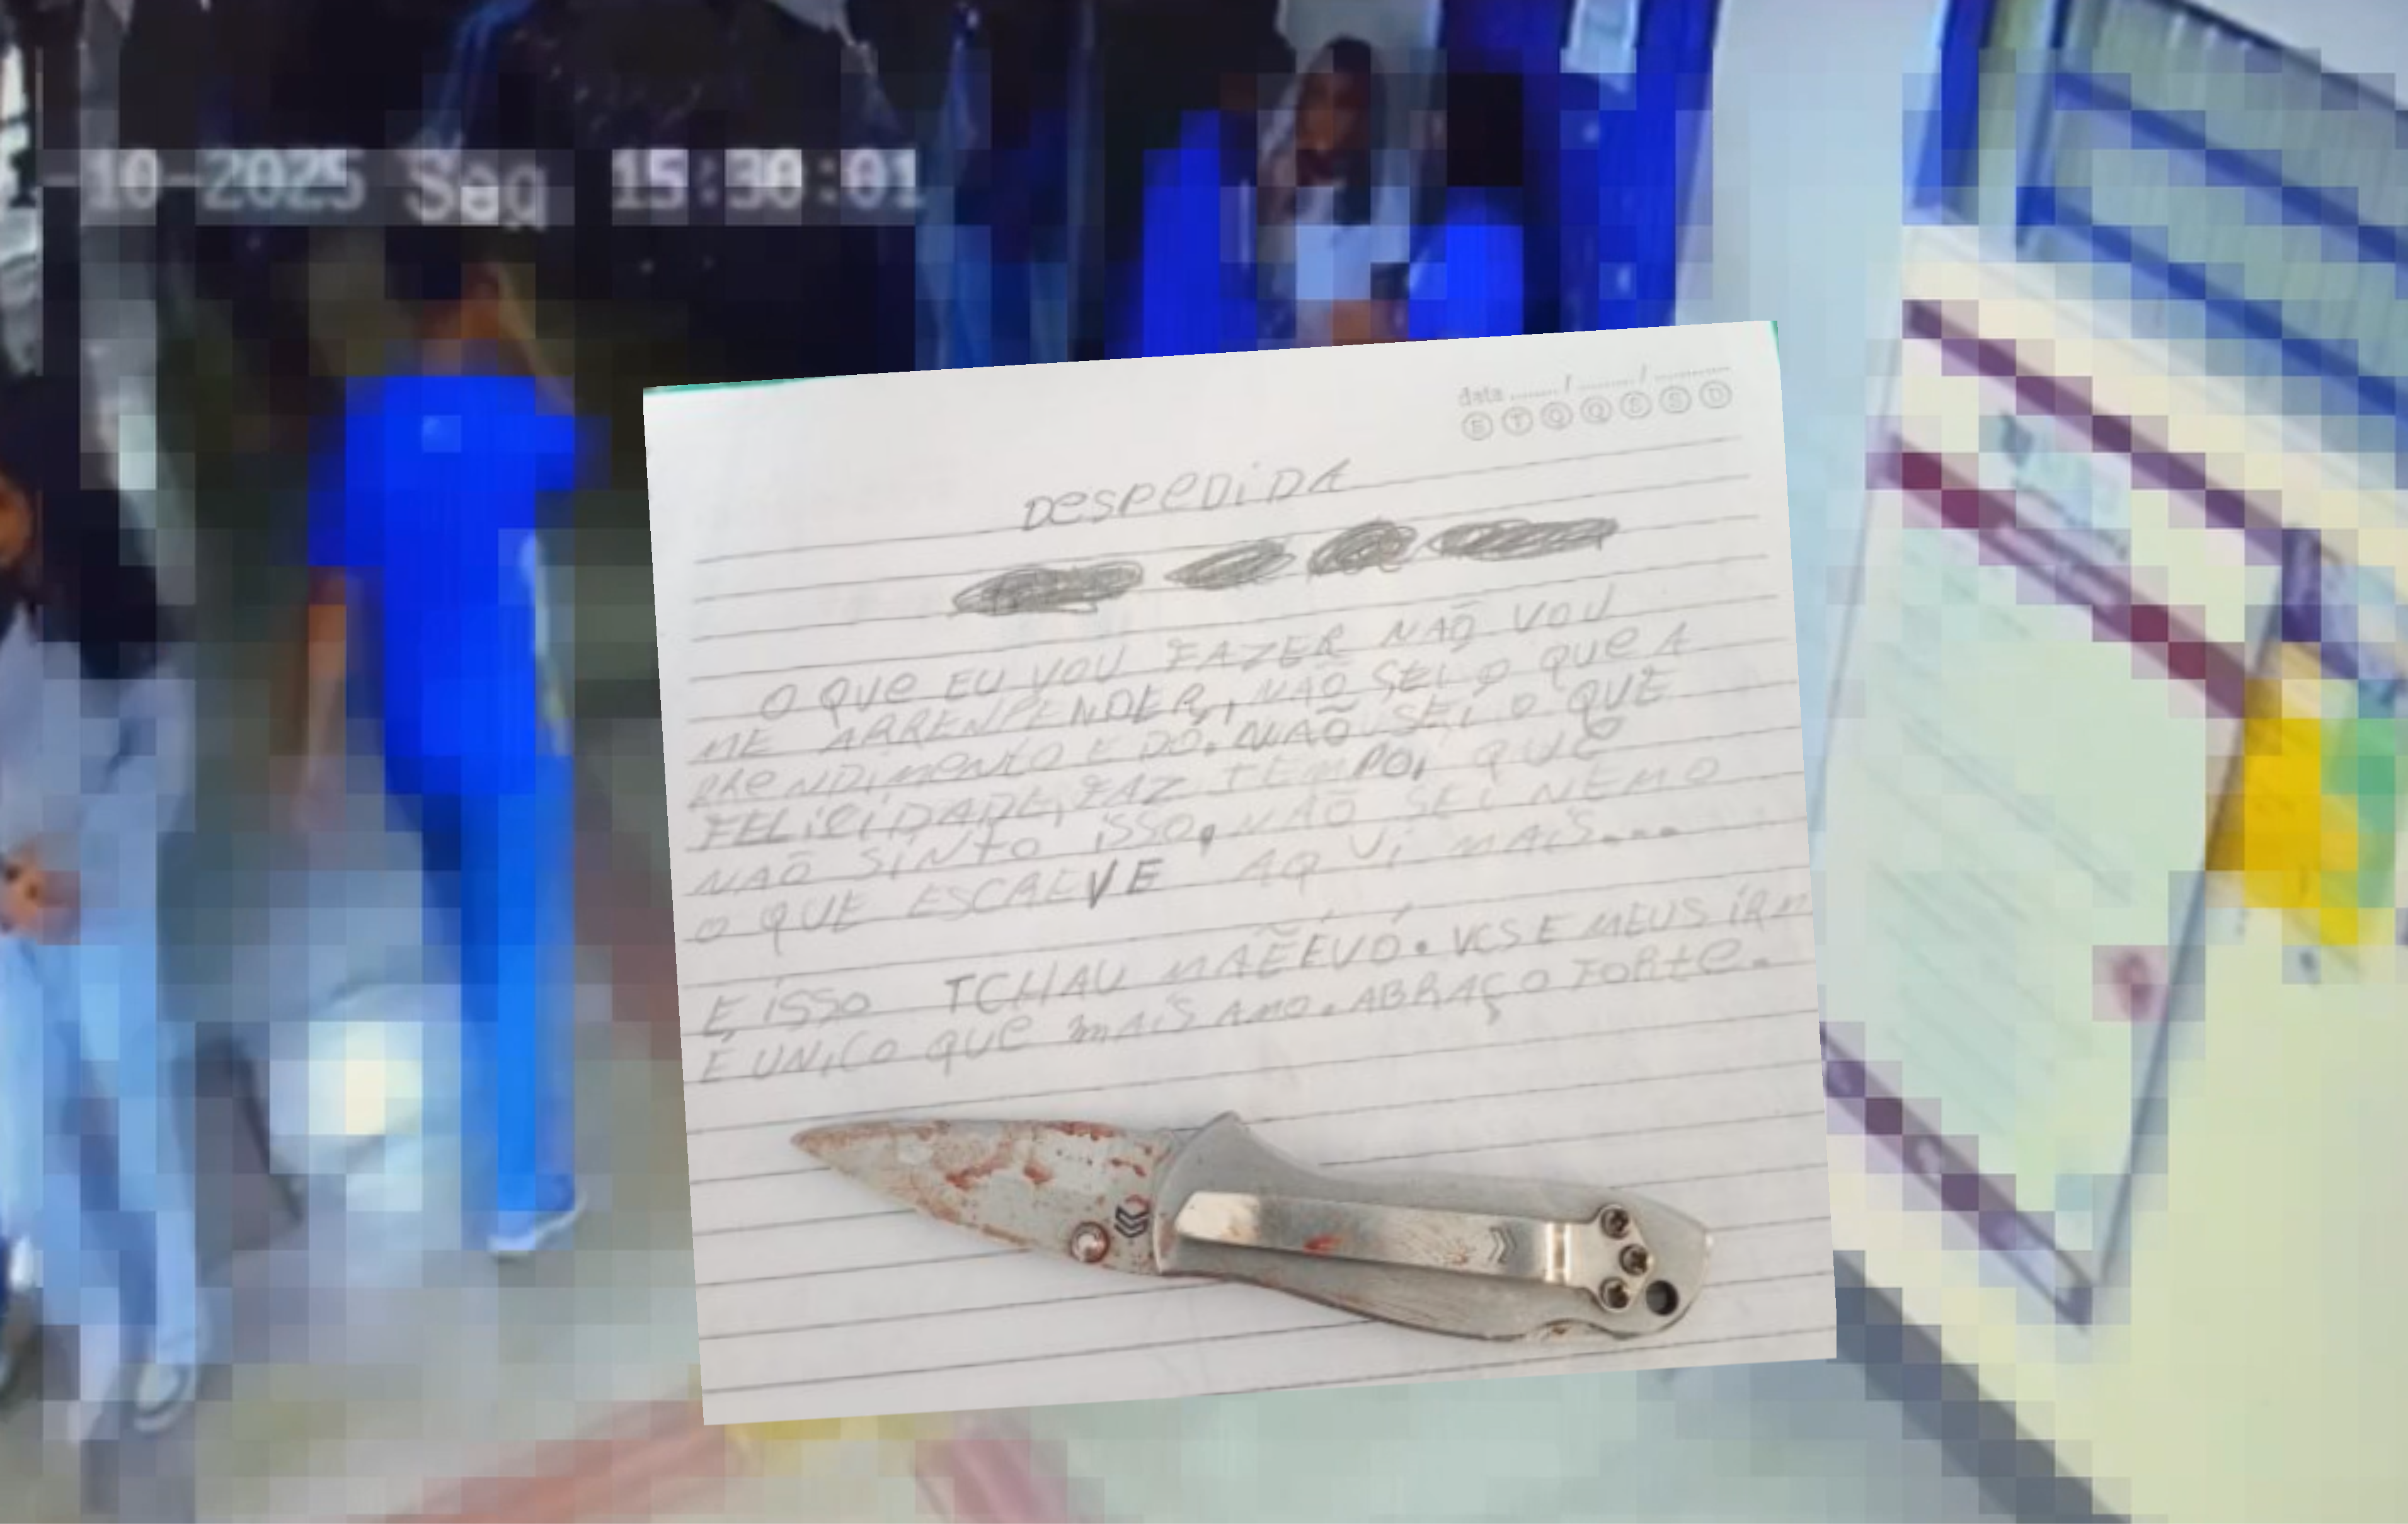 -10-2025 Seg 15:30:01
data ....... / ....... / .......
S T Q Q S S D
DESPEDIDA
O QUE EU VOU FAZER NÃO VOU
ME ARRENPENDER, NÃO SEI O QUE A
RRENDIMENTO E DÓ. NÃO SEI O QUE
FELICIDADE, FAZ TEMPO, QUE
NÃO SINTO ISSO, NÃO SEI NEMO
O QUE ESCREVE AQUI MAIS...
E ISSO TCHAU MÃE E VÓ. VCS E MEUS IRM
E UNICO QUE MAIS AMO. ABRAÇO FORTE.